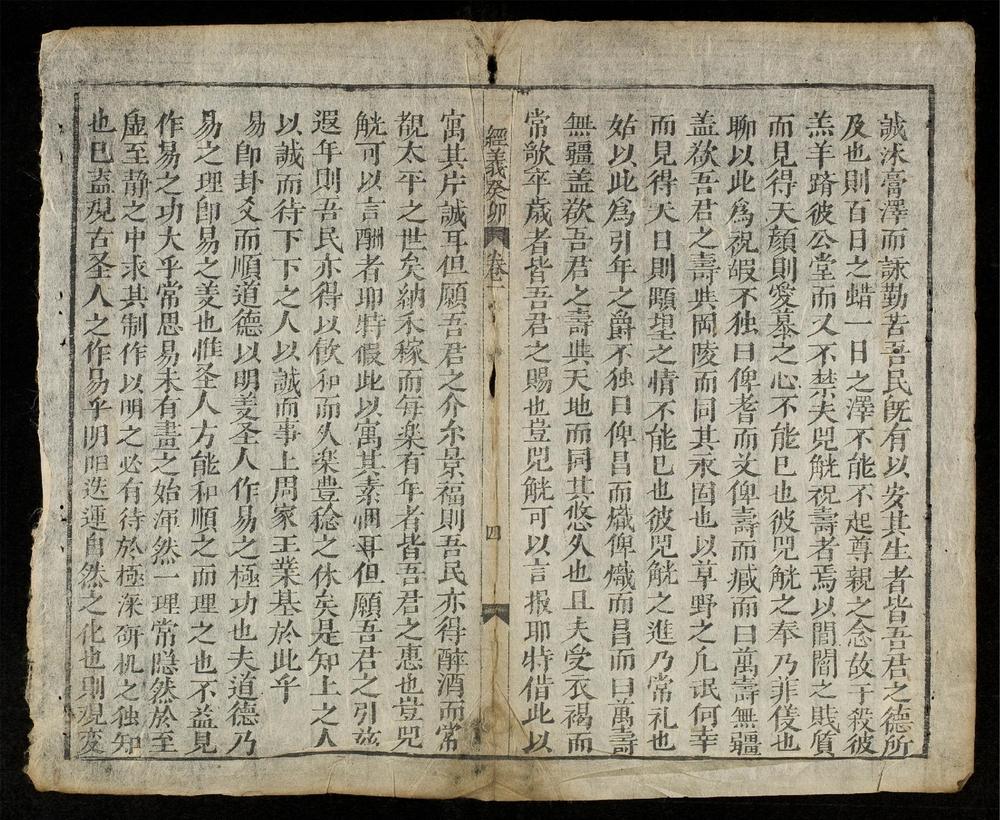 誠沭膏澤而詠勤苦吾民既有以安其生者皆吾君之德所
及也則百日之蜡一日之澤不能不起尊親之念故于殺彼
羔羊躋彼公堂而又不禁夫兕觥祝壽者焉以閭閻之賎質
而見得天顔則愛慕之心不能巳也彼兕觥之奉乃菲儀也
聊以此爲祝嘏不独曰俾耆而艾俾壽而臧而曰萬壽無疆
盖欲吾君之壽與岡陵而同其永固也以草野之凢氓何幸
而見得天日則顒望之情不能巳也彼兕觥之進乃常礼也
姑以此爲引年之爵不独曰俾昌而熾俾熾而昌而曰萬壽
無疆盖欲吾君之壽與天地而同其悠久也且夫受衣褐而
常歌卒歲者皆吾君之賜也豈兕觥可以言报耶特借此以
經義癸卯 卷二 四
寓其片誠耳但願吾君之介尒景福則吾民亦得醉酒而常
覩太平之世矣納禾稼而每楽有年者皆吾君之惠也豈兕
觥可以言酬者耶特假此以寓其素悃耳但願吾君之引玆
遐年則吾民亦得以飲和而久楽豊稔之休矣是知上之人
以誠而待下下之人以誠而事上周家王業基於此乎
易卽卦爻而順道德以明义圣人作易之極功也夫道德乃
易之理卽易之义也惟圣人方能和順之而理之也不益見
作易之功大乎常思易未有畫之始渾然一理常隠然於至
虛至静之中求其制作以明之必有待於極深研机之独知
也巳盖观古圣人之作易乎阴阳迭運自然之化也則观変